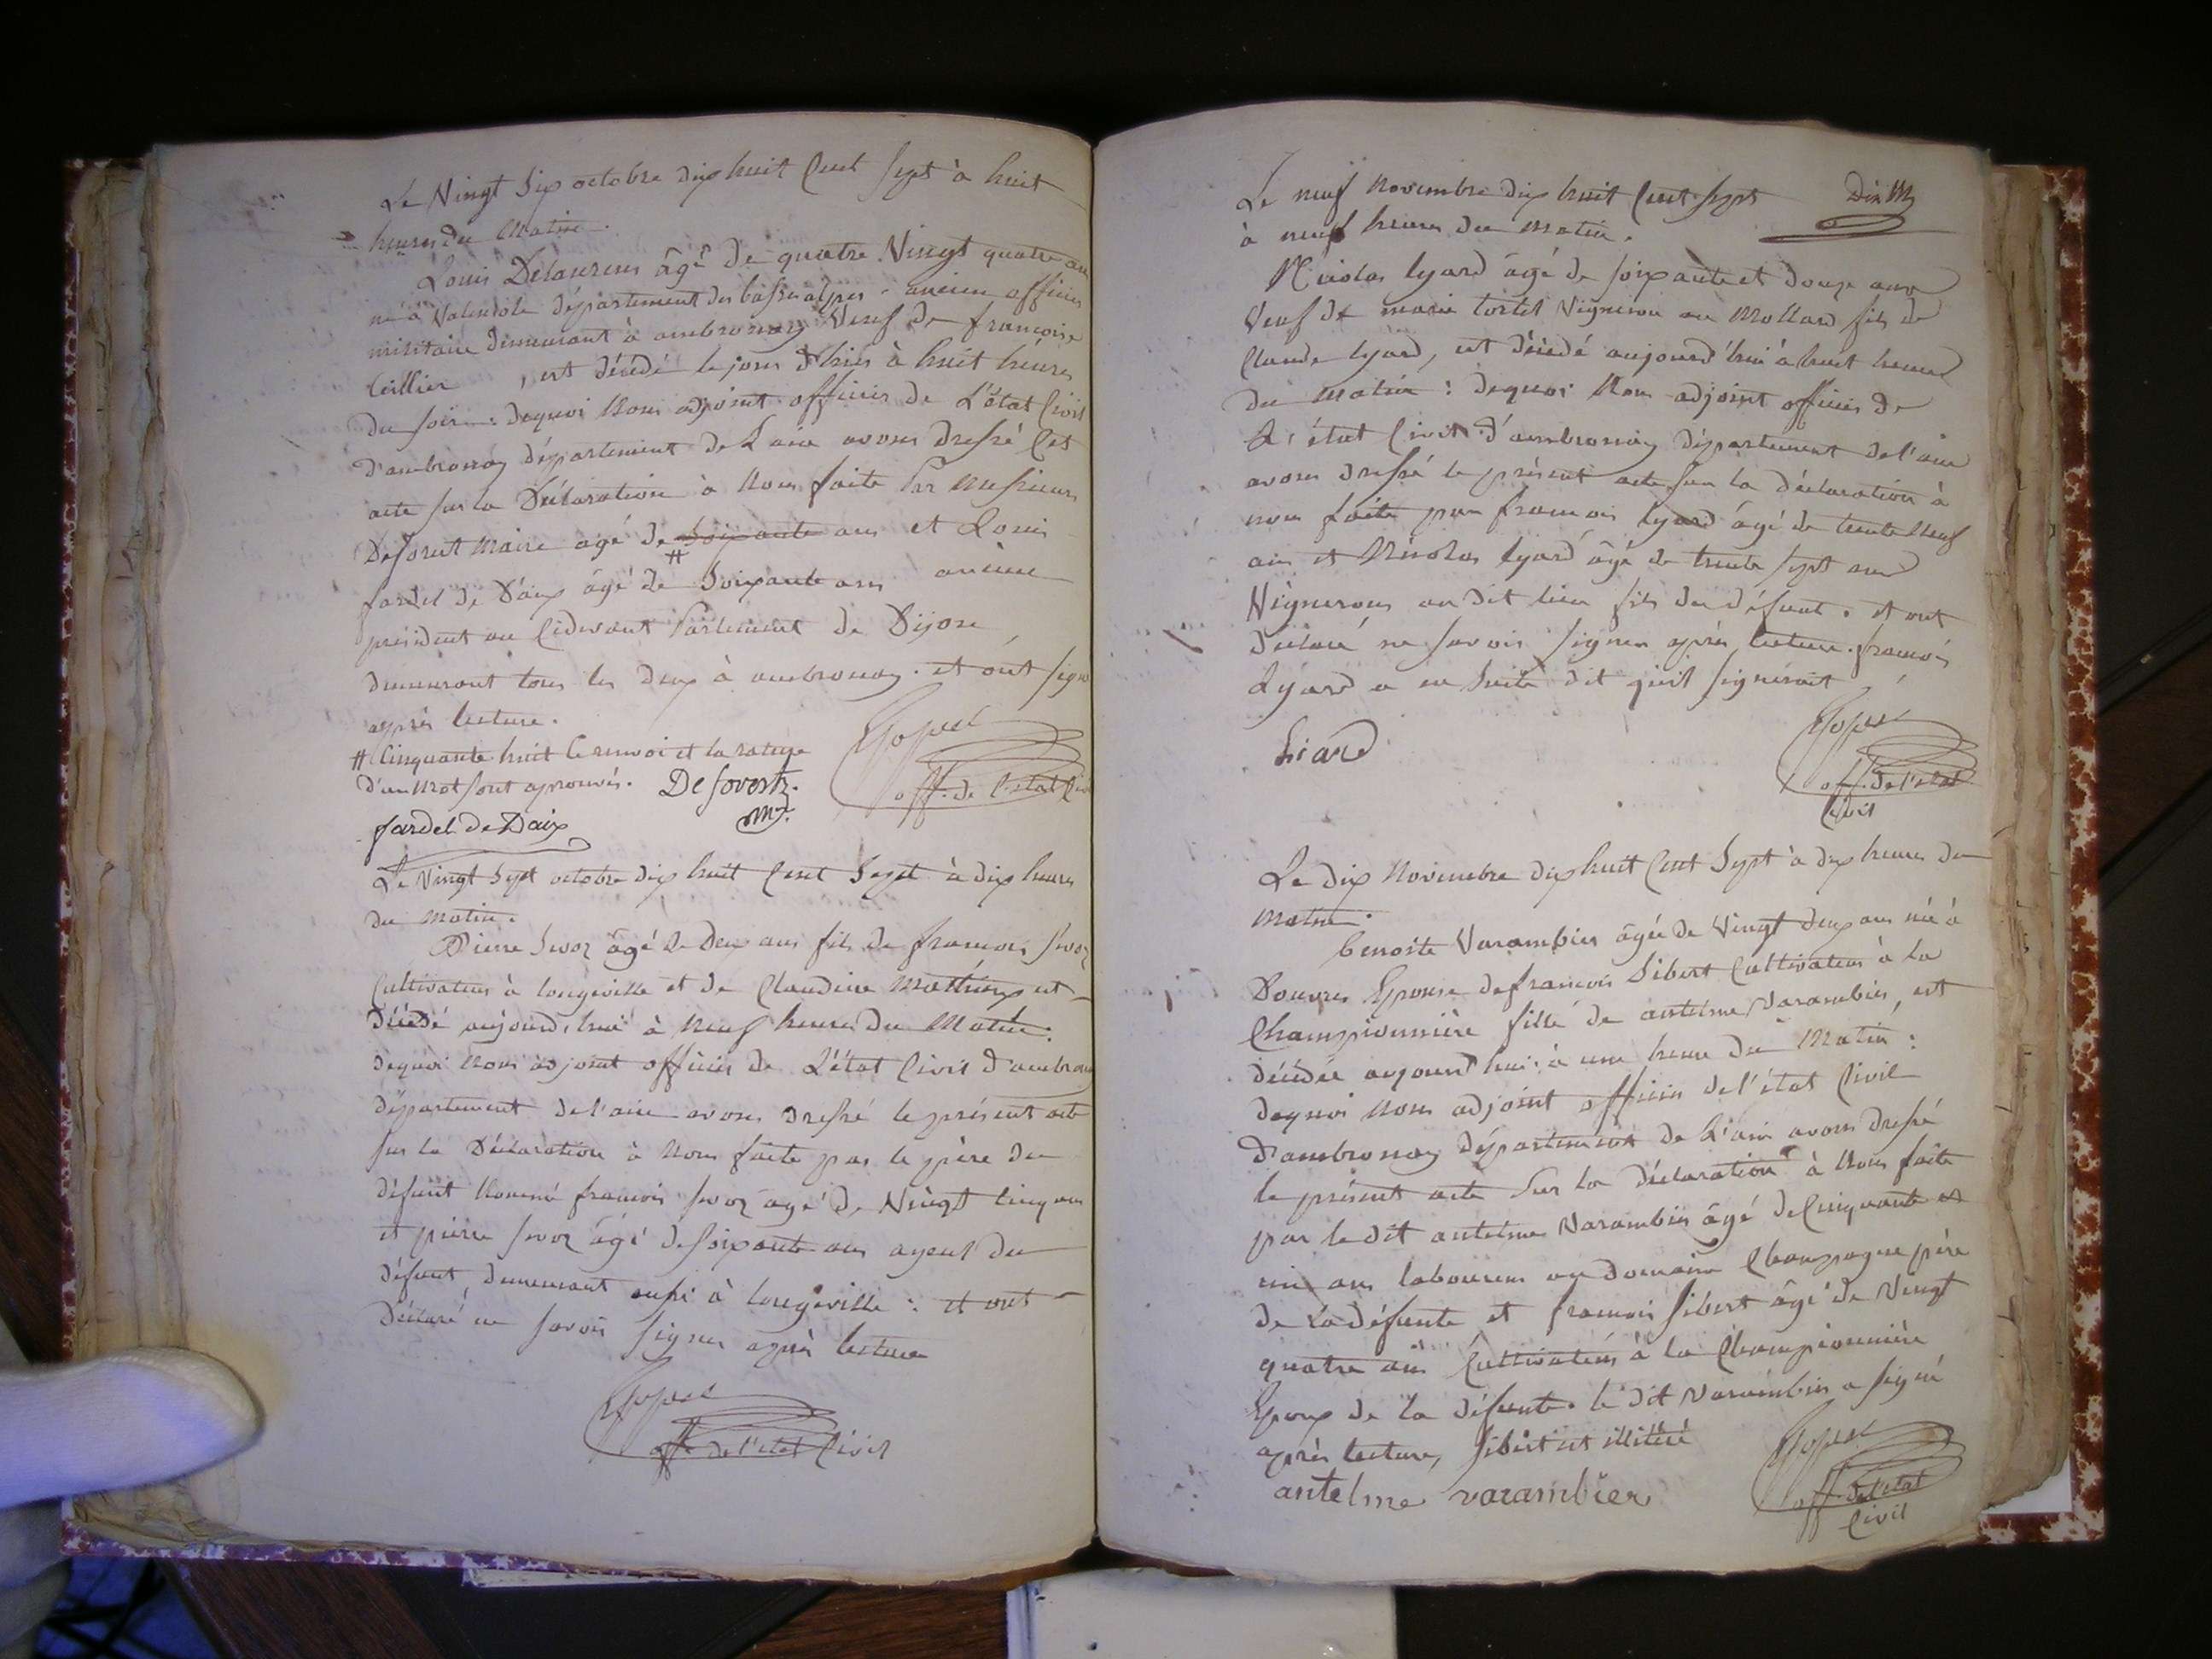 Le Vingt Six octobre dix huit Cent Sept à huit
heures du Matin.
Louis Delaurens âgé de quatre Vingt quatre ans
né à Valensole département des basses alpes ancien officier
militaire demeurant à ambronay Veuf de françoise
Cullier, est décédé le jour d'hier à huit heures
du soir. dequoi Nous adjoint officier de L'état Civil
d'ambronay département de L'ain avons dressé Cet
acte sur la Déclaration à Nous faite Par Messieurs
Deforest Maire agé de soixante ans et Louis
#
fardel de Daix âgé de Soixante ans ancien
président au Cidevant Parlement de Dijon
demeurant tous les deux à ambronay. et ont signé
après lecture.
# Cinquante huit le renvoi et la rature
d'un Mot sont aprouvés. Deforest m.re
off. de l'etat Civil
fardel de Daix
Le Vingt Sept octobre dix huit Cent Sept à dix heures
du matin.
Pierre Sevoz âgé de Deux ans fils de francois Sevoz
Cultivateur à longeville et de Claudine Mathieux est
décédé aujourd'hui à Neuf heures du Matin.
dequoi Nous adjoint officier de L'état Civil d'ambronay
département de l'ain avons dressé le présent acte
sur la Déclaration à Nous faite par le père du
défunt Nommé francois Sevoz agé de Vingt Cinq ans
et pierre Sevoz âgé de soixante ans ayeul du
défunt, demeurant aussi à longeville : et ont
Déclaré ne savoir signer après lecture
off. de l'etat Civil
Le neuf Novembre dix huit Cent sept
à neuf heures du matin.
Nicolas lyard âgé de soixante et douze ans
Veuf de marie tortel Vigneron au Mollard fils de
Claude lyard, est décédé aujourd'hui à huit heures
du matin : dequoi Nous adjoint officier de
L'état Civil d'ambronay département de l'ain
avons dressé le présent acte sur la déclaration à
nous faite par francois lyard âgé de trente Neuf
ans et Nicolas lyard âgé de trente sept ans
Vignerons au dit lieu fils du défunt. et ont
déclaré ne savoir signer après lecture. francois
Lyard a en suite dit qu'il signerait
Liard
off. de l'etat
Civil
Le dix Novembre dix huit Cent Sept à dix heures du
matin.
benoite Varambier âgée de Vingt deux ans née à
Douvres Epouse de francois Sibert Cultivateur à la
Championnière fille de antelme Varambier, est
décédée aujourd'hui à une heure du Matin :
dequoi Nous adjoint officier de l'état Civil
D'ambronay département de L'ain avons dressé
le présent acte sur la déclaration à Nous faite
par le dit antelme Varambier âgé de Cinquante et
un ans laboureur au domaine Champagne père
de La défunte et francois Sibert âgé de Vingt
quatre ans Cultivateur à la Championnière
Epoux de la défunte. le dit Varambier a signé
après lecture, Sibert est illitéré
antelme varambier
off. de l'etat
Civil